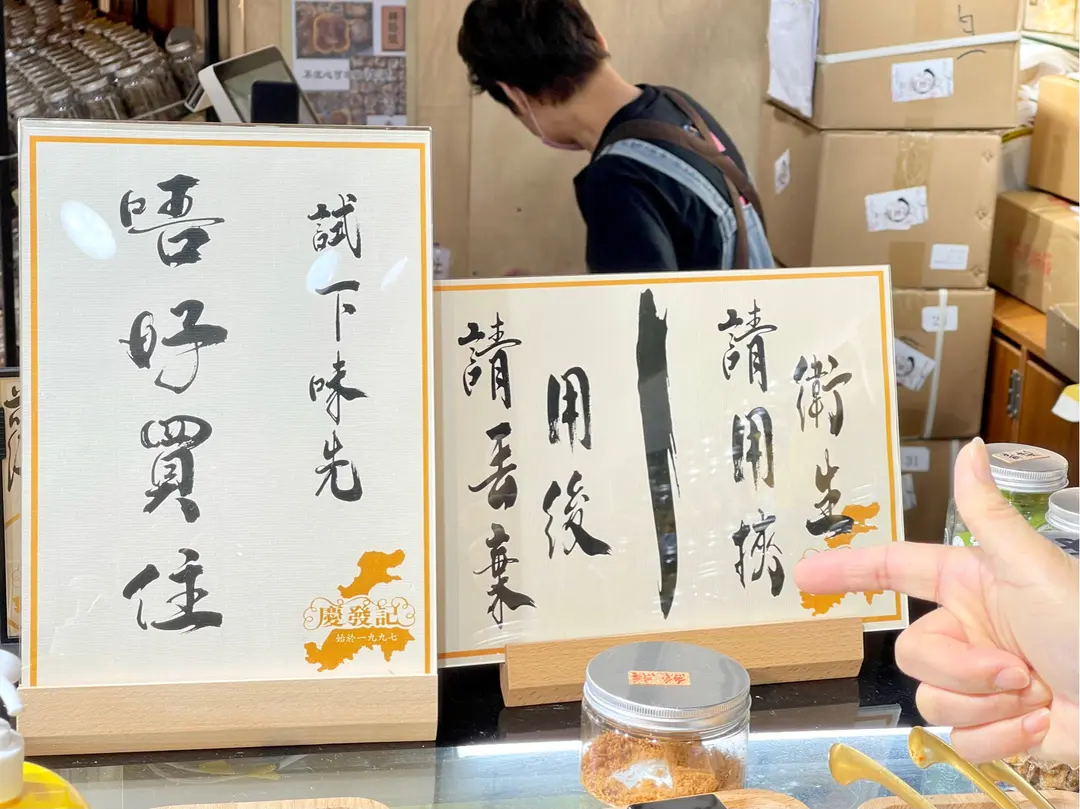 試下味先
唔好買住
慶發記
始於一九九七
衛生
請用挾
用後
請丟棄
31